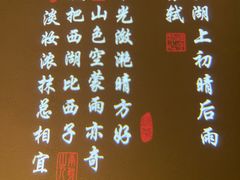 湖上初晴后雨
轼
光潋滟晴方好
山色空蒙雨亦奇
把西湖比西子
淡妆浓抹总相宜